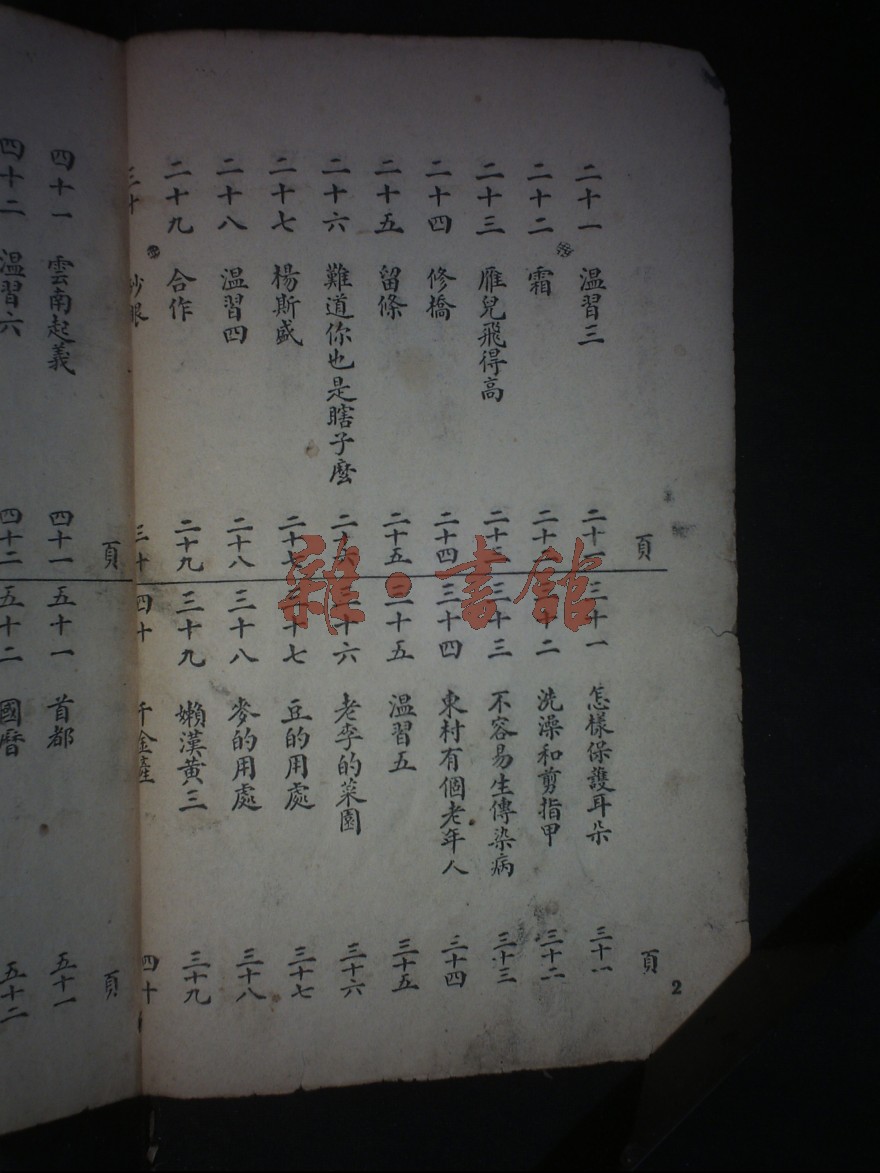 頁
二十一 温習三 二十一
二十二 霜 二十二
二十三 雁兒飛得高 二十三
二十四 修橋 二十四
二十五 留條 二十五
二十六 難道你也是瞎子麼 二十六
二十七 楊斯盛 二十七
二十八 温習四 二十八
二十九 合作 二十九
三十 沙眼 三十
頁
三十一 怎樣保護耳朵 三十一
三十二 洗澡和剪指甲 三十二
三十三 不容易生傳染病 三十三
三十四 東村有個老年人 三十四
三十五 温習五 三十五
三十六 老李的菜園 三十六
三十七 豆的用處 三十七
三十八 麥的用處 三十八
三十九 嬾漢黃三 三十九
四十 千金臺 四十
2
頁
四十一 雲南起義 四十一
四十二 温習六 四十二
頁
五十一 首都 五十一
五十二 國曆 五十二
雜·書館